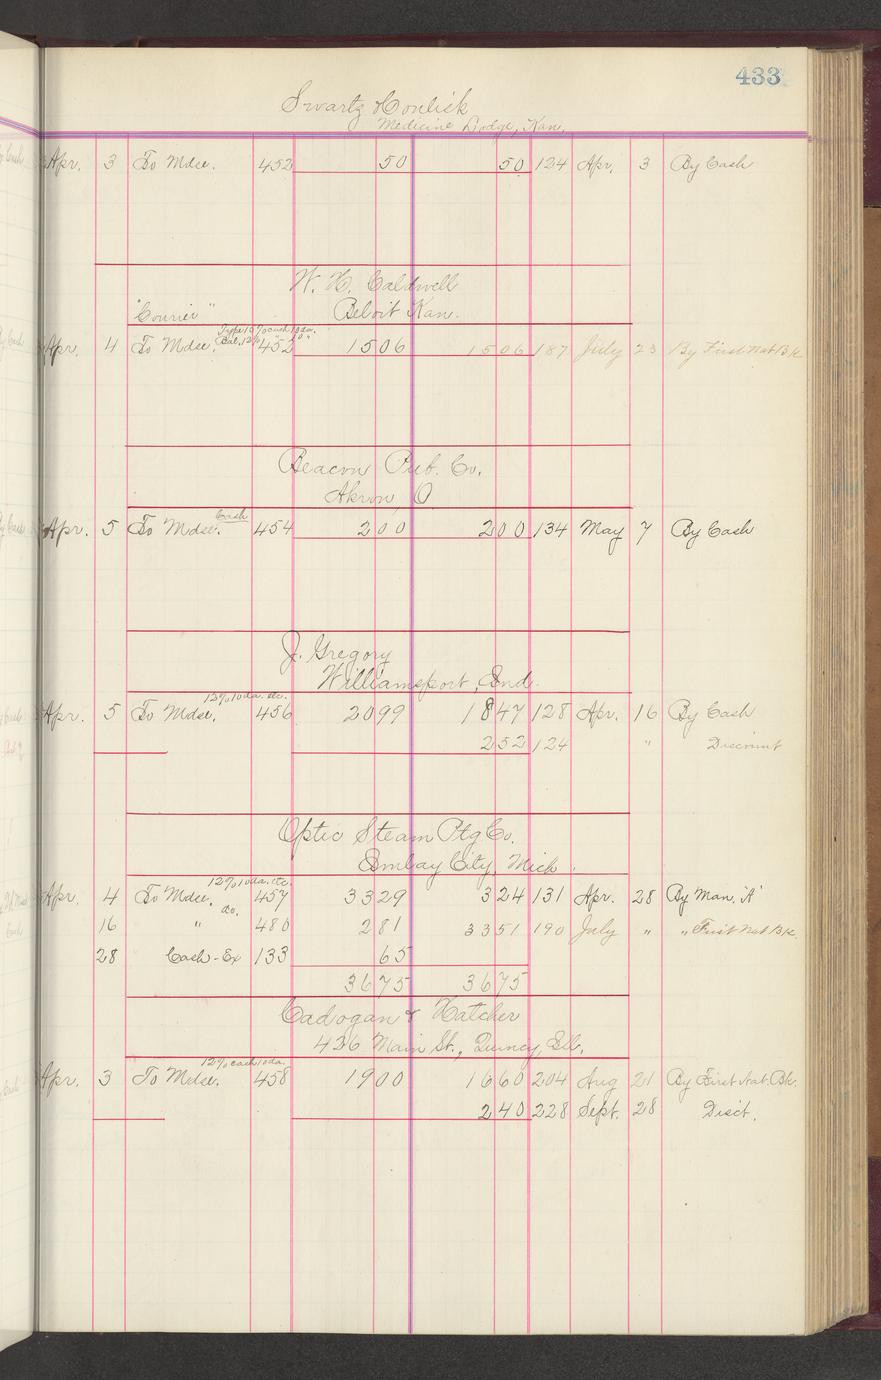 433
Swartz & Conlick
Medicine Lodge, Kan.
Apr. 3 To Mdse. 452 50 50 124 Apr. 3 By Cash
W. H. Caldwell
"Courier" Beloit Kan.
Type 10% cash 10 da.
Bal. 12% 10 "
Apr. 4 To Mdse. 452 1506 1506 187 July 23 By First Nat Bk
Beacon Pub. Co.
Akron, O
Cash
Apr. 5 To Mdse. 454 200 200 134 May 7 By Cash
J. Gregory
Williamsport, Ind.
12% 10 da. etc.
Apr. 5 To Mdse. 456 2099 1847 128 Apr. 16 By Cash
252 124 " Discount
Optic Steam Ptg Co.
Imlay City, Mich.
12% 10 da. etc.
Apr. 4 To Mdse. 457 3329 324 131 Apr. 28 By Man. "A"
do.
16 " 480 281 3351 190 July " " First Nat Bk.
28 Cash-Ex 133 65
3675 3675
Cadogan & Hatcher
426 Main St., Quincy, Ill.
12% cash 10 da.
Apr. 3 To Mdse. 458 1900 1660 204 Aug 21 By First Nat. Bk.
240 228 Sept. 28 Disct.